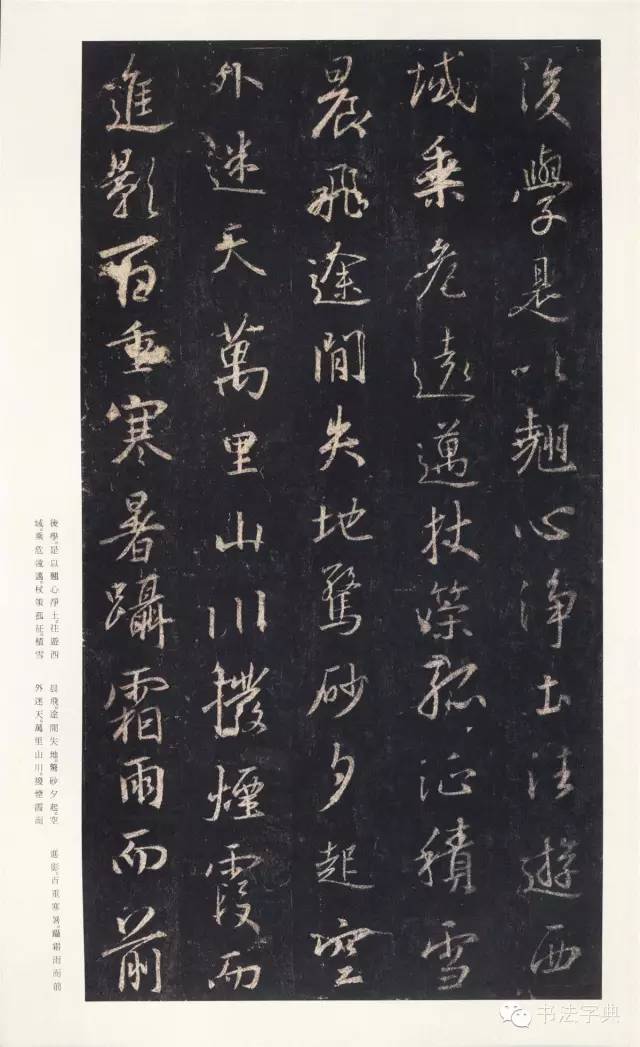 後學是以翹心淨土法遊西
域乘危遠邁杖策孤征積雪
晨飛途間失地驚砂夕起空
外迷天萬里山川撥煙霞而
進影百重寒暑躡霜雨而前
後學。是以翹心淨土。往遊西
域。乘危遠邁。杖策孤征。積雪
晨飛。途間失地。驚砂夕起。空
外迷天。萬里山川。撥煙霞而
進影。百重寒暑。躡霜雨而前
书法字典